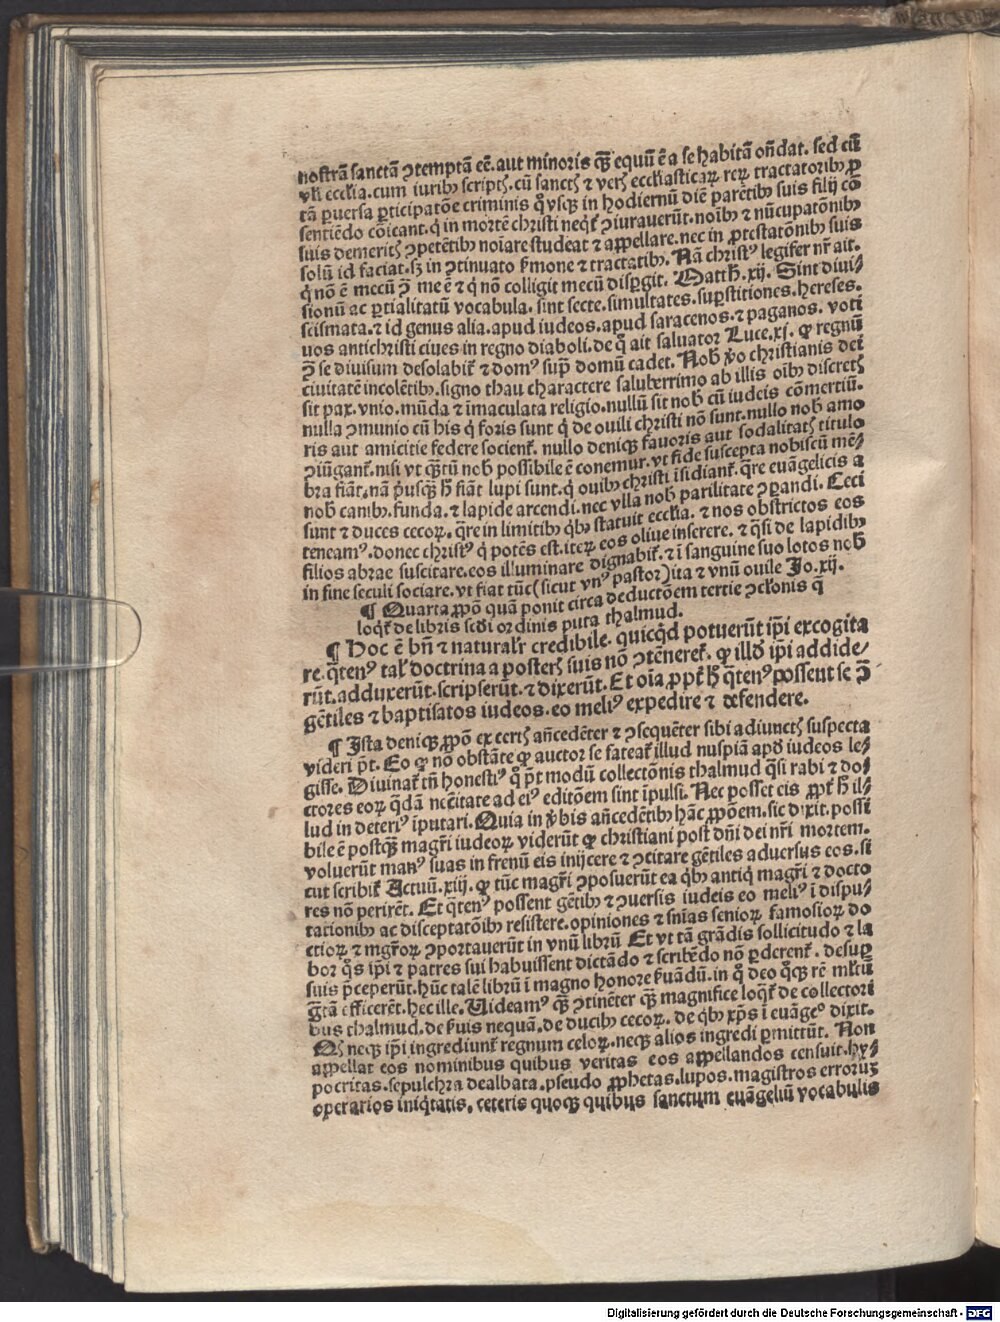 nostrã sanctã ꝯtemptã eē. aut minoris qꝫ equũ ē a se habitã oñdat. sed cũ
vłi ecclia. cum iuribꝫ scriptꝭ. cũ sanctꝭ ⁊ verꝭ ecclīasticaꝝ reꝝ tractatoribꝫ ꝓ
tã ꝑuersa ꝑticipatōe criminis q̊ vsqꝫ in hodiernũ diē parētibꝫ suis filij cõ
sentiēdo cōīcant. q̇ in mortē christi neqt̃ ꝯiurauerũt. noībꝫ ⁊ nũcupatõnibꝫ
suis demeritꝭ ꝯpetētibꝫ noīare studeat ⁊ appellare. nec in ꝓtestatõnibꝫ suis
solũ id faciat. sꝫ in ꝯtinuato ẜmone ⁊ tractatibꝫ. Nã christꝰ legifer nr̃ ait.
q̇ nõ ē mecũ ꝯ̃ me ē ⁊ q̇ nõ colligit mecũ disꝑgit. Matth. xij. Sint diui⸗
sionũ ac ꝑtialitatũ vocabula. sint secte. simultates. suꝑstitiones. hereses.
scismata. ⁊ id genus alia. apud iudeos. apud saracenos. ⁊ paganos. voti
uos antichristi ciues in regno diaboli. de q̊ ait saluator Luce. xj. ꝙ regnũ
ꝯ̃ se diuisum desolabit̃ ⁊ domꝰ supͣ domũ cadet. Nob̃ v̊o christianis dei
ciuitatē incolētibꝫ. signo thau charactere saluberrimo ab illis oībꝫ discretꝭ
sit pax. vnio. mũda ⁊ īmaculata religio. nullũ sit nob̃ cũ iudeis cõmertiũ.
nulla ꝯmunio cũ his q̇ foris sunt q̇ de ouili christi nõ sunt. nullo nob̃ amo
ris aut amicitie federe socient̃. nullo deniqꝫ fauoris aut sodalitatꝭ titulo
ꝯiũgant̃. nisi vt qꝫtũ nob̃ possibile ē conemur. vt fide suscepta nobiscũ mē⸗
bra fiãt. nã pͥusqꝫ h̃ fiãt lupi sunt. q̇ ouibꝫ christi īsidiant̃. q̃re euãgelicis a
nob̃ canibꝫ. funda. ⁊ lapide arcendi. nec vlla nob̃ parilitate ꝯꝑandi. Ceci
sunt ⁊ duces cecoꝝ. q̃re in limitibꝫ qͥbꝫ statuit ecclīa. ⁊ nos obstrictos eos
teneamꝰ. donec christꝰ q̇ potēs est. iteꝝ eos oliue inserere. ⁊ q̃si de lapidibꝫ
filios abrae suscitare. eos illuminare dignabit̃. ⁊ ī sanguine suo lotos nob̃
in fine seculi sociare. vt fiat tũc (sicut vnꝰ pastor) ita ⁊ vnũ ouile Jo. xij.
¶ Quarta ꝓpõ quã ponit circa deductõem tertie ꝯclonis q̃
loqt̃ de libris scdi ordinis puta thalmud.
¶ Hoc ē bñ ⁊ naturalr̃ credibile. quicqͥd potuerũt ip̃i excogita
re. q̃tenꝰ tal̃ doctrina a posterꝭ suis nõ ꝯtēneret̃. ꝙ illd̃ ip̃i addide⸗
rũt. adduxerũt. scripserũt. ⁊ dixerũt. Et oīa ꝓpt̃ h̃ q̃tenꝰ possent se ꝯ̃
gētiles ⁊ baptisatos iudeos. eo meliꝰ expedire ⁊ defendere.
¶ Ista deniqꝫ ꝓpõ ex certꝭ añcedēter ⁊ ꝯseqũēter sibi adiunctꝭ suspecta
videri pōt. Eo ꝙ nõ obstãte ꝙ auctor se fateat̃ illud nuspiã apd̃ iudeos le⸗
gisse. Diuinat̃ tñ honestiꝰ q̊ pōt modũ collectõnis thalmud q̃si rabi ⁊ do⸗
ctores eoꝝ q̃dã ncc̃itate ad eiꝰ editõem sint īpulsi. Nec posset eis ꝓpt̃ h̃ il⸗
lud in deteriꝰ īputari. Quia in v̓bis añcedētibꝫ hãc ꝓpõem. sic dixit. possi
bile ē postqꝫ magr̃i iudeoꝝ viderũt ꝙ christiani post dñi dei nr̃i mortem.
voluerũt manꝰ suas in frenũ eis inijcere ⁊ ꝯcitare gētiles aduersus eos. si
cut scribit̃ Actuũ. xiij. ꝙ tũc magr̃i ꝯposuerũt ea qͥbꝫ antiq̇ magr̃i ⁊ docto
res nõ perirēt. Et q̃tenꝰ possent gētibꝫ ⁊ ꝯuersis iudeis eo meliꝰ ī dispu⸗
tationibꝫ ac disceptatõibꝫ resistere. opiniones ⁊ sñias senioꝝ famosioꝝ do
ctioꝝ ⁊ mgr̃oꝝ ꝯportauerũt in vnũ librũ Et vt tã grãdis sollicitudo ⁊ la
bor q̊s ip̃i ⁊ patres sui habuissent dictãdo ⁊ scribēdo nõ ꝑderent̃. desuꝑ
suis p̃ceperũt. hũc talē librũ ī magno honore ẜuãdũ. in q̊ deo q̊qꝫ rē ml̃tũ
gͣtã efficerēt. hec ille. Uideamꝰ qꝫ ꝯtinēter qꝫ magnifice loqt̃ de collectori
bus thalmud. de ẜuis nequã. de ducibꝫ cecoꝝ. de qͥbꝫ xp̃s ī euãgeᵒ dixit.
Qꝭ neqꝫ ip̃i ingrediunt̃ regnum celoꝝ. neqꝫ alios ingredi ꝑmittũt. Non
appellat eos nominibus quibus veritas eos appellandos censuit. hy⸗
pocritas. sepulchra dealbata. pseudo ꝓphetas. lupos. magistros erroruꝫ
operarios iniq̇tatis. ceteris quoqꝫ quibus sanctum euãgeliũ vocabulis
Digitalisierung gefördert durch die Deutsche Forschungsgemeinschaft - DFG